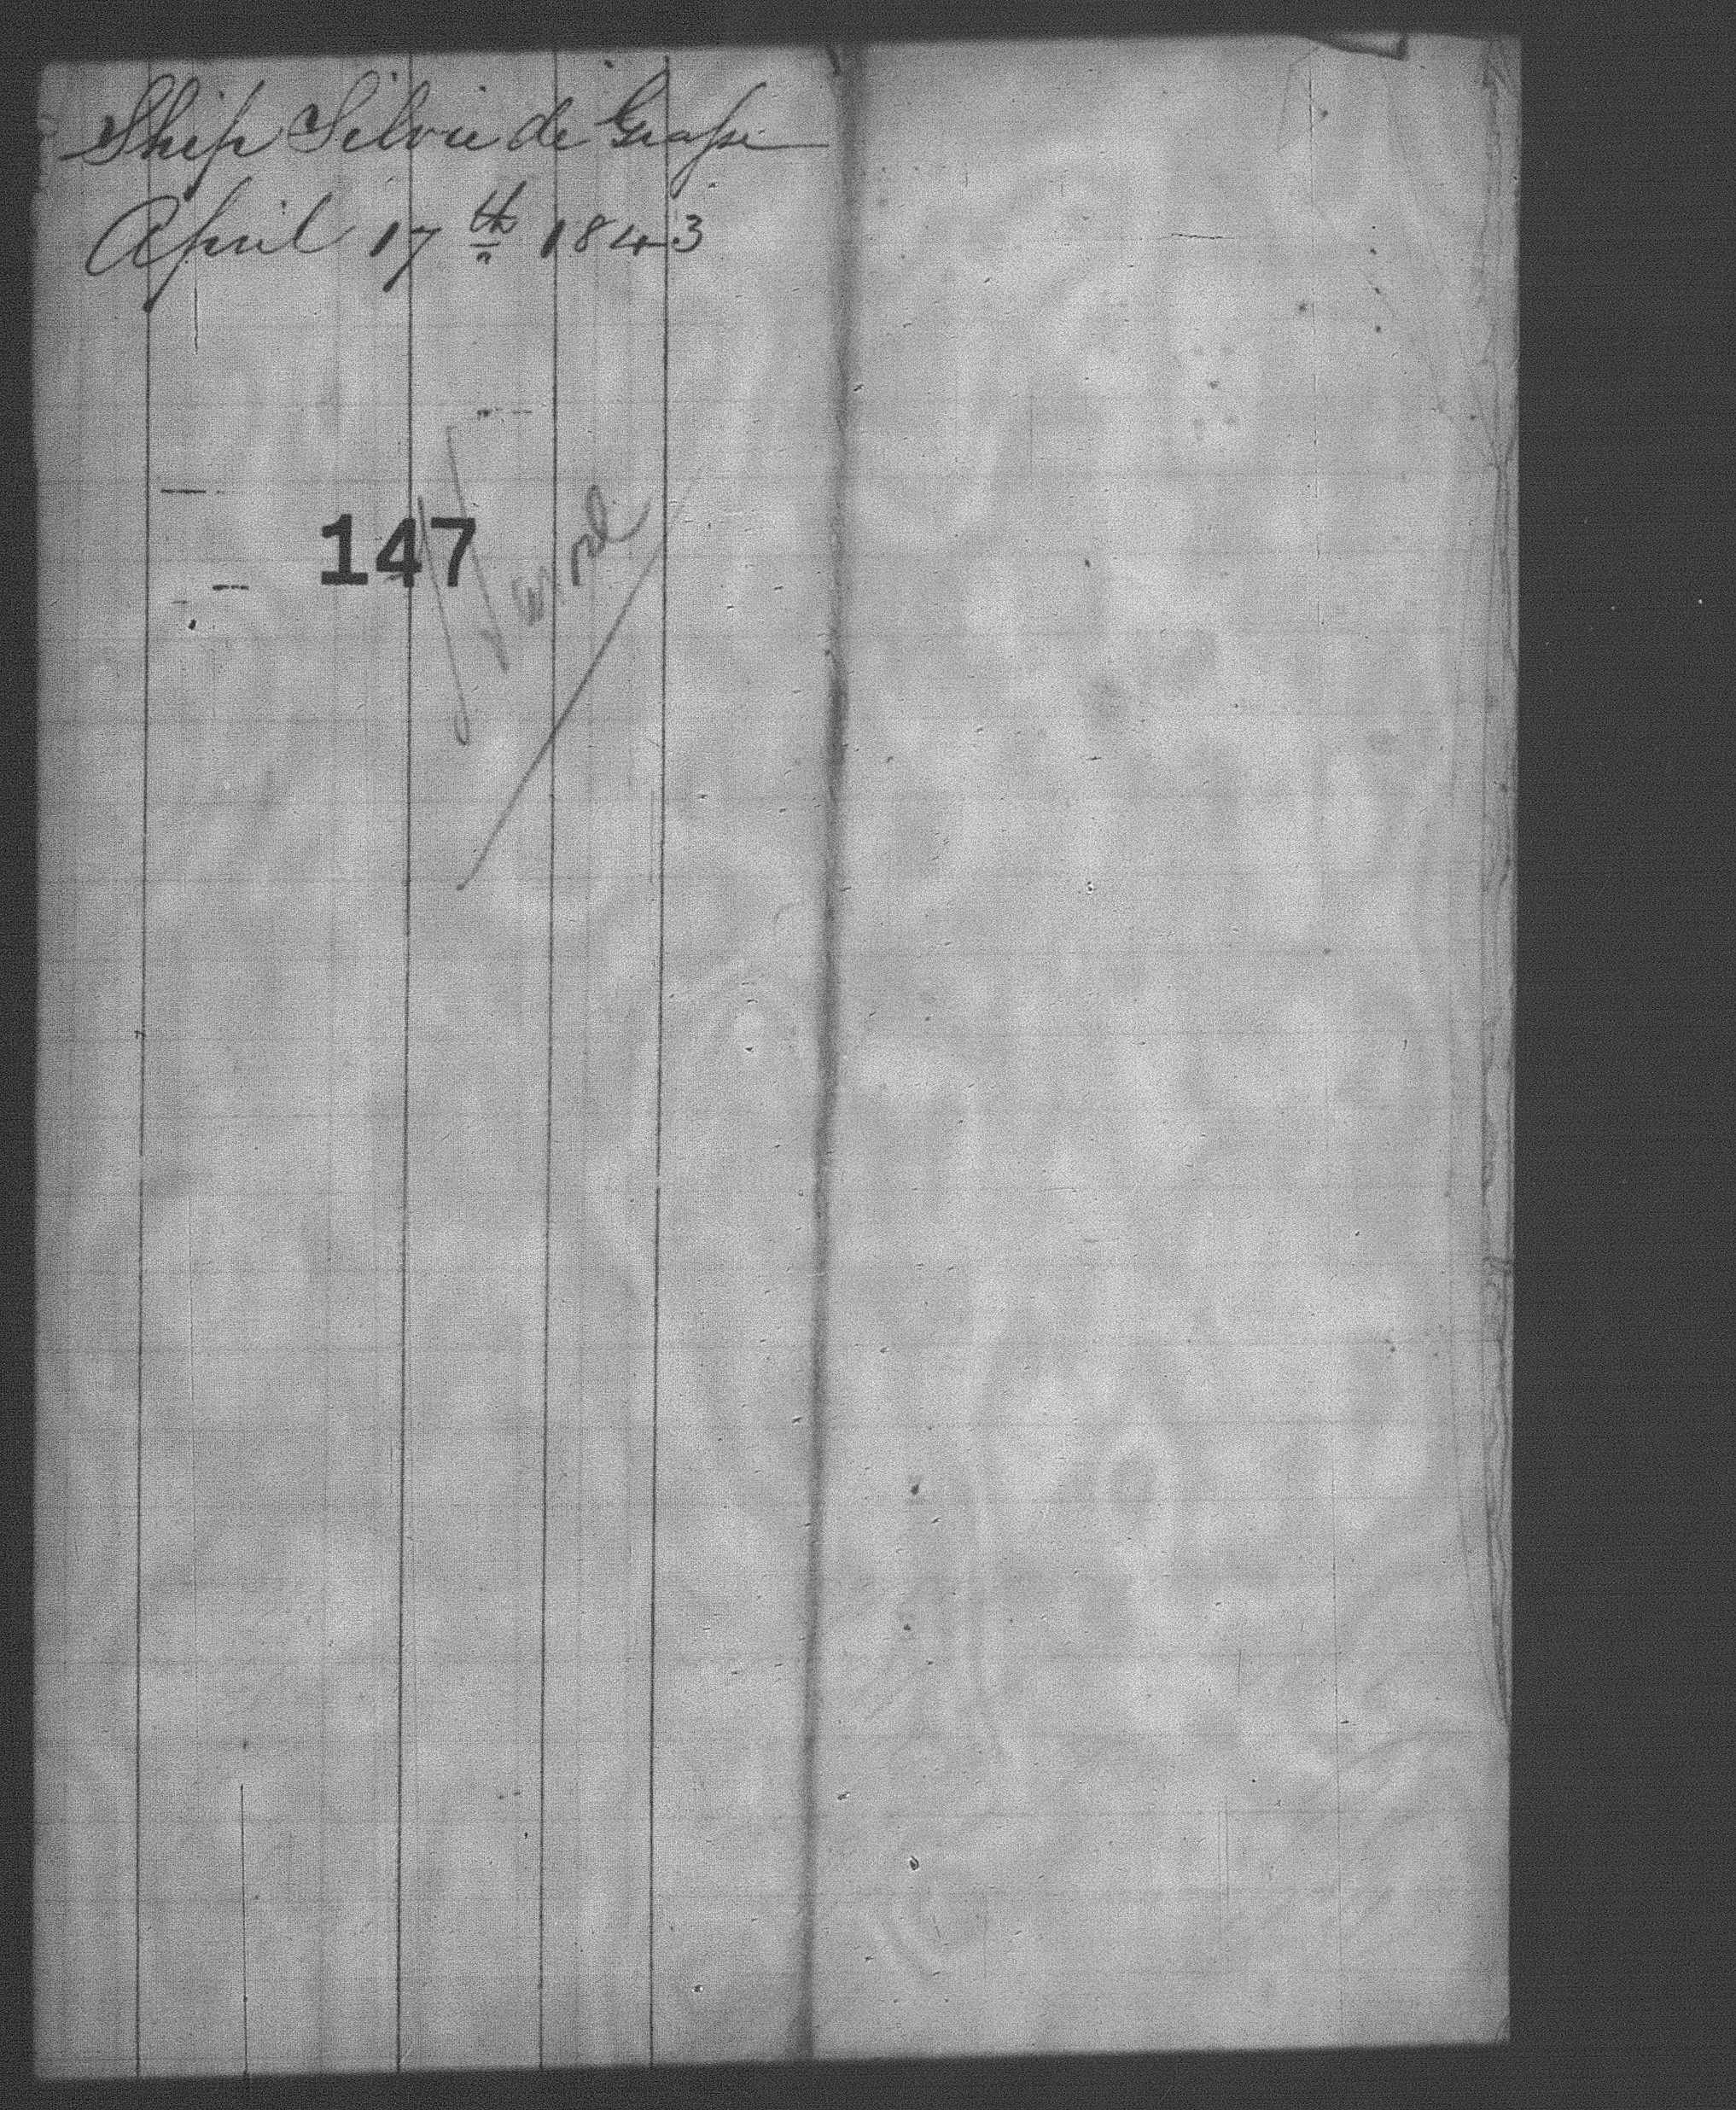 Ship Silvie de Grasse
April 17th 1843
147